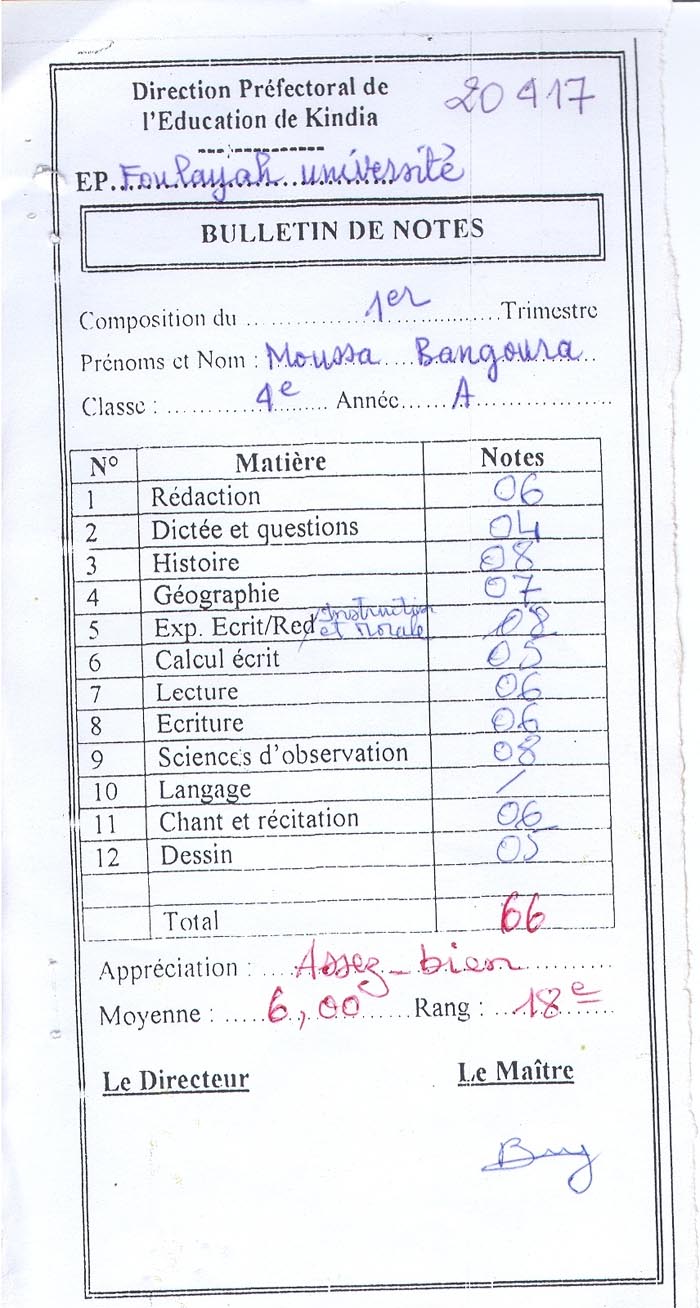 Direction Préfectoral de
l'Education de Kindia
20 417
EP. Foulayah université
BULLETIN DE NOTES
Composition du 1er Trimestre
Prénoms et Nom : Moussa Bangoura
Classe : 4e Année A
N° Matière Notes
1 Rédaction 06
2 Dictée et questions 04
3 Histoire 08
4 Géographie 07
5 Exp. Ecrit/Red Instruction et Morale 08
6 Calcul écrit 05
7 Lecture 06
8 Ecriture 06
9 Sciences d'observation 08
10 Langage /
11 Chant et récitation 06
12 Dessin 05
Total 66
Appréciation : Assez-bien
Moyenne : 6,00 Rang : 18e
Le Directeur Le Maître